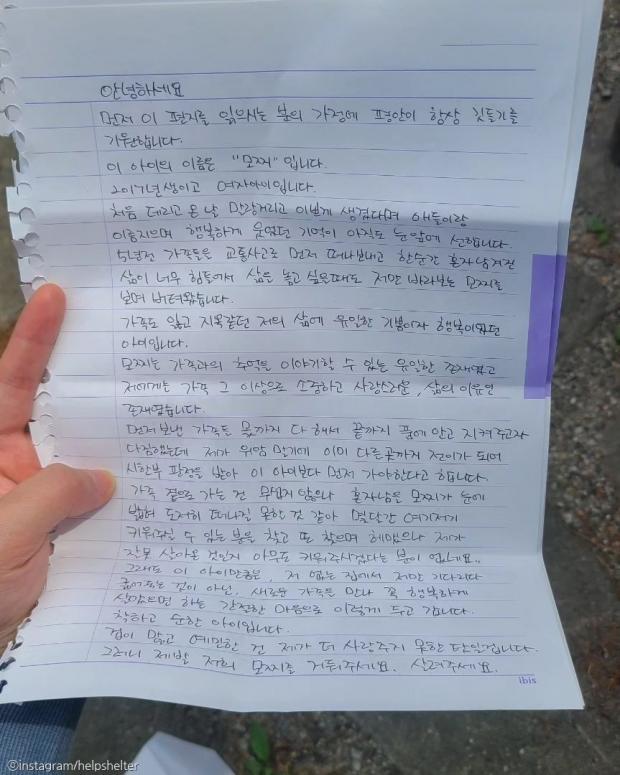 안녕하세요
먼저 이 편지를 읽으시는 분의 가정에 평안이 항상 깃들기를
기원합니다.
이 아이의 이름은 "모찌" 입니다.
2017년생이고 여자아이입니다.
처음 데리고 온 날 말랑거리고 이쁘게 생겼다며 애들이랑
이름지으며 행복하게 웃었던 기억이 아직도 눈앞에 선합니다.
5년전 가족들을 교통사고로 먼저 떠나보내고 한순간 혼자남겨진
삶이 너무 힘들어서 삶을 놓고 싶을때도 저만 바라보는 모찌를
보며 버텨왔습니다.
가족도 잃고 지옥같던 저의 삶에 유일한 기쁨이자 행복이였던
아이입니다.
모찌는 가족과의 추억을 이야기할 수 있는 유일한 존재였고
저에게는 가족 그 이상으로 소중하고 사랑스러운, 삶의 이유인
존재였습니다.
먼저보낸 가족들 몫까지 다해서 끝까지 품에 안고 지켜주고자
다짐했는데 제가 위암 말기에 이미 다른곳까지 전이가 되어
시한부 판정을 받아 이 아이보다 먼저 가야한다고 합니다.
가족 곁으로 가는 건 무섭지 않으나 혼자남을 모찌가 눈에
밟혀 도저히 떠나질 못할 것 같아 몇달간 여기저기
키워주실 수 있는 분을 찾고 또 찾으며 헤맸으나 제가
잘못 살아온 것인지 아무도 키워주시겠다는 분이 없네요..
그래도 이 아이만큼은, 저 없는 집에서 저만 기다리다
굶어죽는 것이 아닌, 새로운 가족을 만나 꼭 행복하게
살았으면 하는 간절한 마음으로 이렇게 두고 갑니다.
착하고 순한 아이입니다.
겁이 많고 예민한 건 제가 더 사랑주지 못한 탓일겁니다.
그러니 제발 저희 모찌를 거둬주세요. 살려주세요.
ibis
@instagram/helpshelter